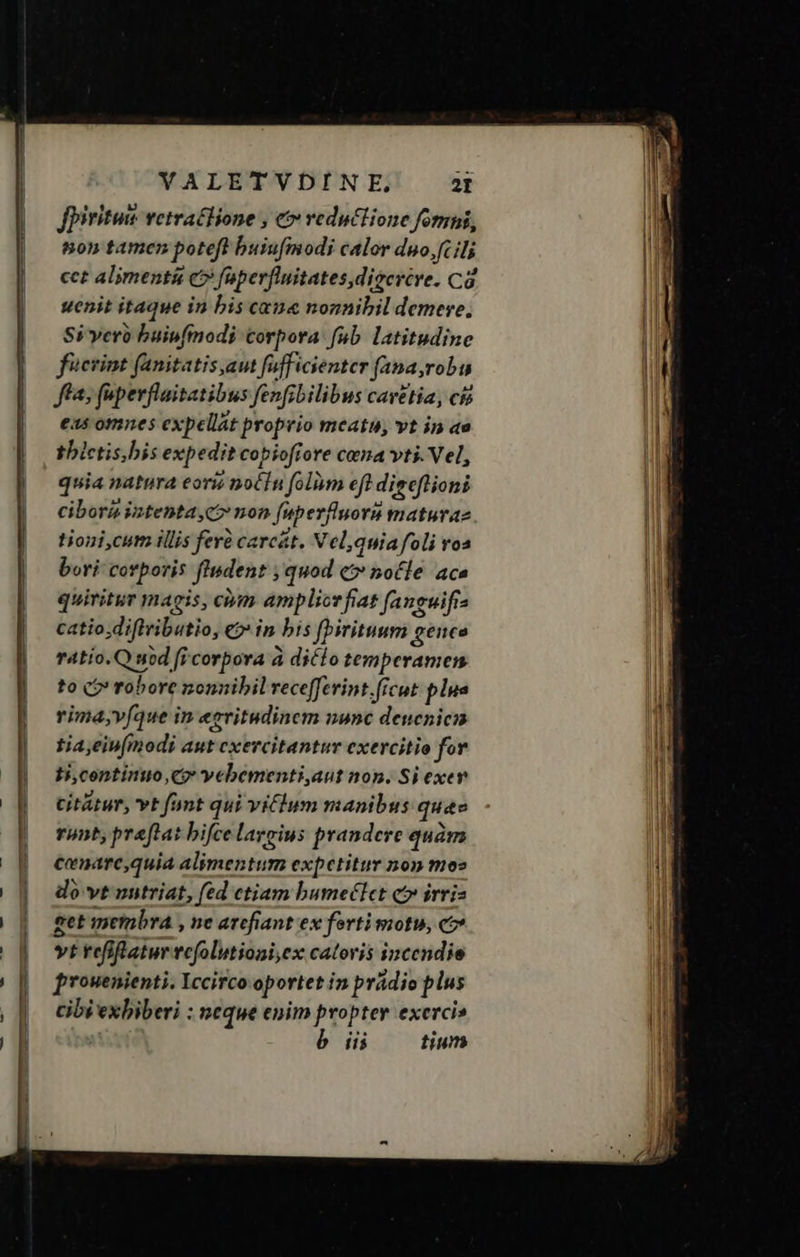 VALETVDINE, 21
ſpirituũ retractione , & reductione ſomni,
non tamen poteſt huiuſmodi calor duo, ſcili
cet alimentũ & ſuperfluitates, digerere. Cõ
uenit itaque in his cœnæ nonnihil demere.
Si verò huiuſmodi corpora ſub latitudine
fuerint ſanitatis, aut ſufficienter ſana, robu
ſta, ſuperfluitatibus ſenſibilibus carẽtia, cũ
eas omnes expellãt proprio meatu, vt in a-
thletis, his expedit copioſiore cœna vti. Vel,
quia natura eorũ noctu ſolùm eſt digeſtioni
ciborũ intenta, & non ſuperfluorũ matura-
tioni, cum illis ferè careãt. Vel, quia ſoli ro-
bori corporis ſtudent , quod & nocte ac-
quiritur magis, cùm amplior fiat ſanguifi-
catio, diſtributio, & in his ſpirituum gene-
ratio. Quòd ſi corpora à dicto temperamen
to & robore nonnihil receſſerint, ſicut plu-
rima, vſque in ægritudinem nunc deuenien
tia, eiuſmodi aut exercitantur exercitio for
ti, continuo, & vehementi, aut non. Si exer
citãtur, vt ſunt qui victum manibus quæ-
runt, præſtat hiſce largius prandere quàm
cœnare, quia alimentum expetitur non mo-
dò vt nutriat, ſed etiam humectet & irri-
get membra , ne arefiant ex forti motu, &
vt reſiſtatur reſolutioni, ex caloris incendio
prouenienti. Iccirco oportet in prãdio plus
cibi exhiberi : neque enim propter exerci-
b iii tium